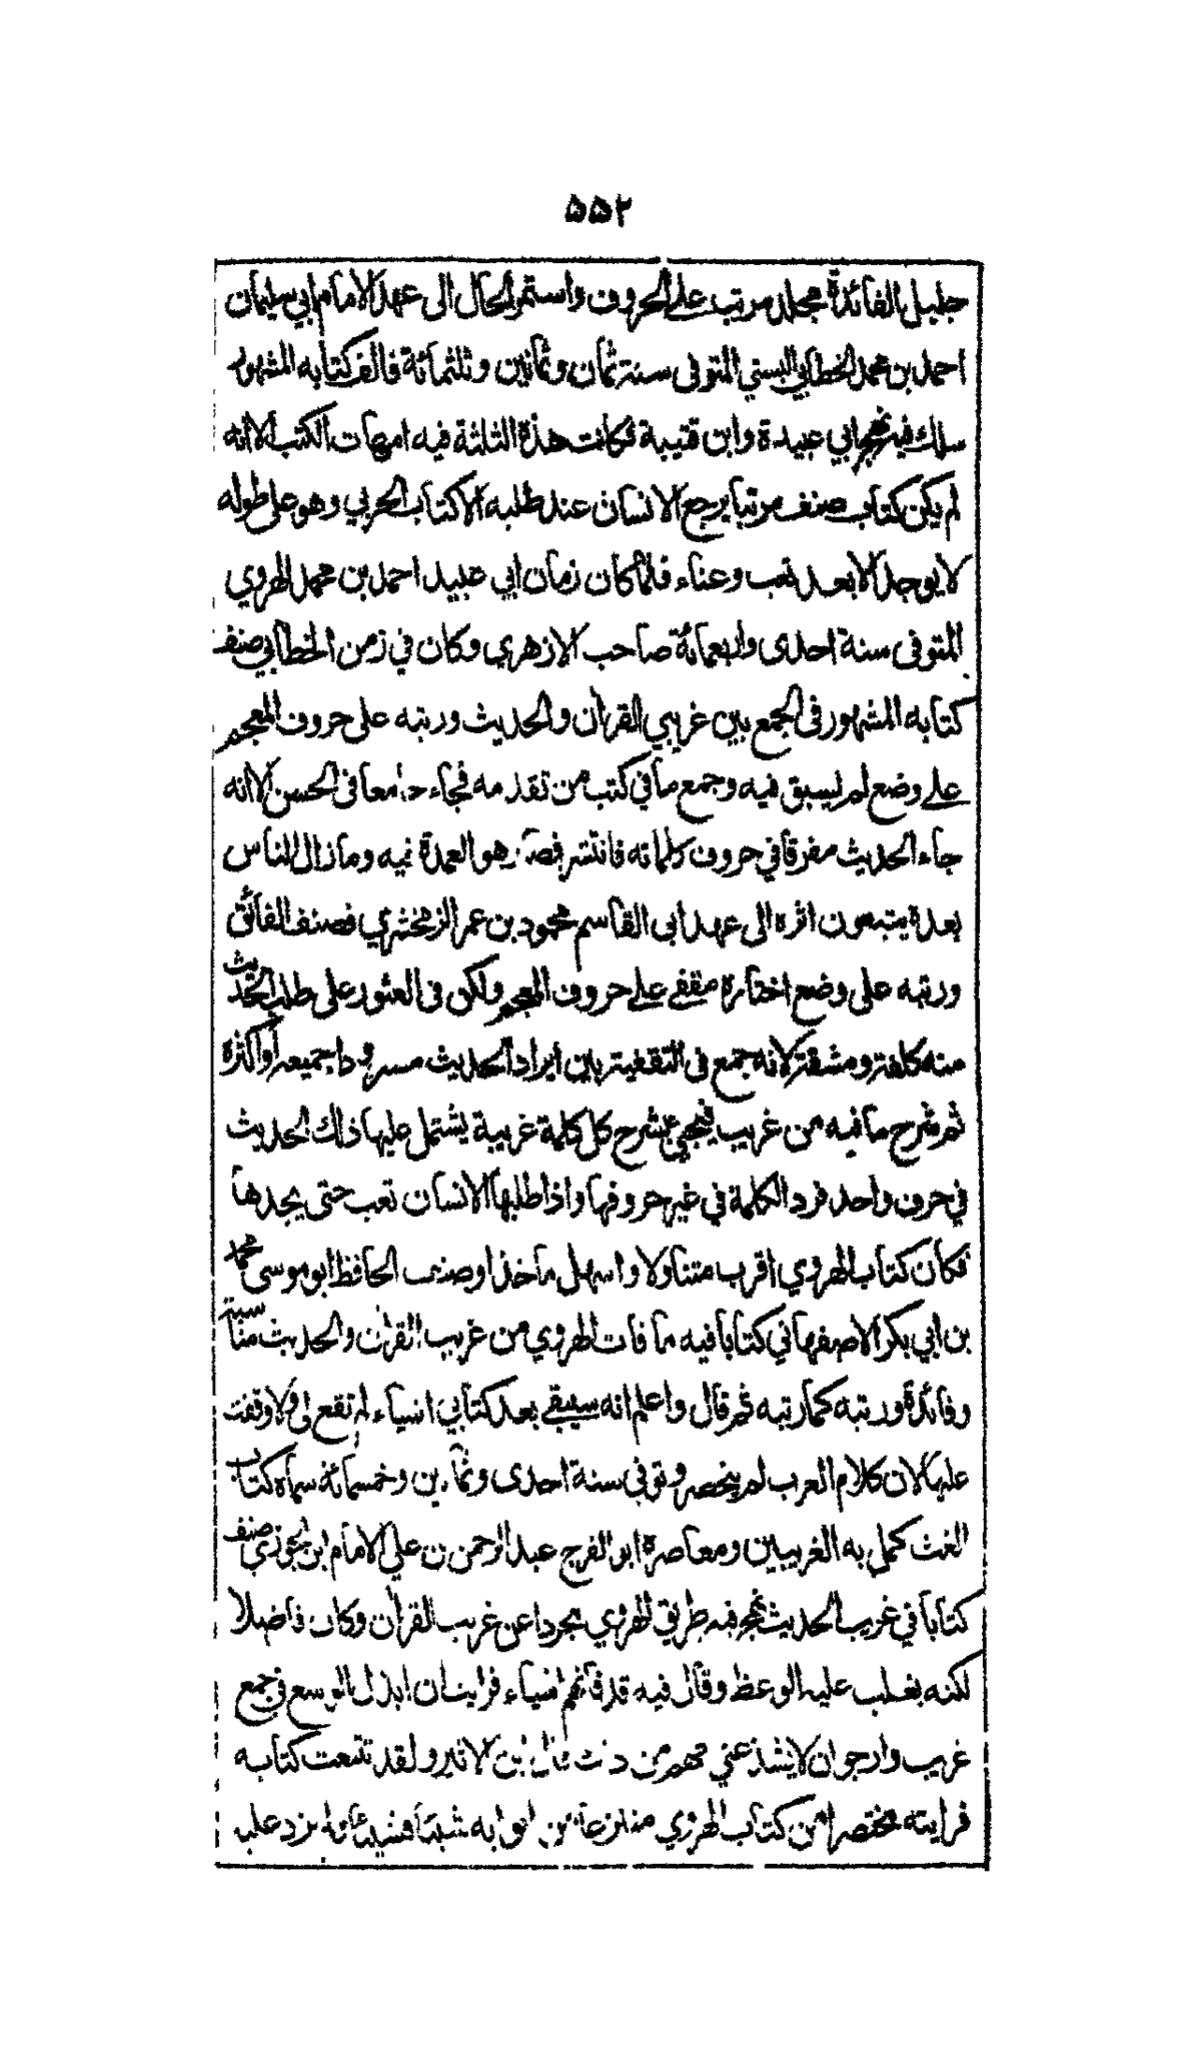 ۵۵۲
جليل الفائدة مجلد مرتب على الحروف واستمر الحال الى عهد الامام ابي سليمان
احمد بن محمد الخطابي البستي المتوفى سنة ثمان وثمانين وثلثمائة فالف كتابه المشهور
سلك فيه نهج ابي عبيدة وابن قتيبة فكانت هذة الثلثة فيه امهات الكتب الا انه
لم يكن كتاب صنف مرتبا يرجع الانسان عند طلبه الا كتاب الحربي وهو على طوله
لا يوجد الا بعد تعب وعناء فلما كان زمان ابي عبيد احمد بن محمد الهروي
المتوفى سنة احدى واربعمائة صاحب الازهري وكان في زمن الخطابي صنف
كتابه المشهور في الجمع بين غريبي القرأن والحديث ورتبه على حروف المعجم
على وضع لم يسبق فيه وجمع ما في كتب من تقدمه فجاء جامعا في الحسن الا انه
جاء الحديث مفرقا في حروف كلماته فانتشر فصار هو العمدة فيه وما زال الناس
بعدة يتبعون اثره الى عهد ابي القاسم محمود بن عمر الزمخشري فصنف الفائق
ورتبه على وضع اختاره مقفى على حروف المعجم ولكن في العثور على طلب الحديث
منه كلفة ومشقة لانه جمع في التقفية بين ايراد الحديث مسرودا جميعه أو اكثرة
ثم شرح ما فيه من غريب فيجئ بشرح كل كلمة غريبة يشتمل عليها ذلك الحديث
في حرف واحد فرد الكلمة في غير حروفها واذا طلبها الانسان تعب حتى يجدها
فكان كتاب الهروي اقرب متناولا واسهل مأخذا وصنف الحافظ ابو موسى محمد
بن ابي بكر الاصفهاني كتابا فيه ما فات الهروي من غريب القرأن والحديث مناسبة
وفائدة ورتبه كما رتبه ثم قال واعلم انه سيبقى بعد كتابي اشياء لم تقع لى ولا وقفت
عليها لان كلام العرب لم ينحصر وتوفي سنة احدى وثمانين وخمسمائة سماه كتاب
الغث كمل به الغريبين ومعاصرة ابو الفرج عبد الرحمن بن علي الامام ابن الجوزي صنف
كتابا في غريب الحديث نهج فيه طريق الهروي مجردا عن غريب القرأن وكان فاضلا
لكنه يغلب عليه الوعظ وقال فيه قد فاتهم اشياء فرايت ان ابذل الوسع في جمع
غريب وارجو ان لا يشذ عني مهم من ذلك قال ابن الاثير ولقد تتبعت كتابه
فرايته مختصرا من كتاب الهروي منتزعا من ابوابه شيئا فشيئا لم يزد عليه